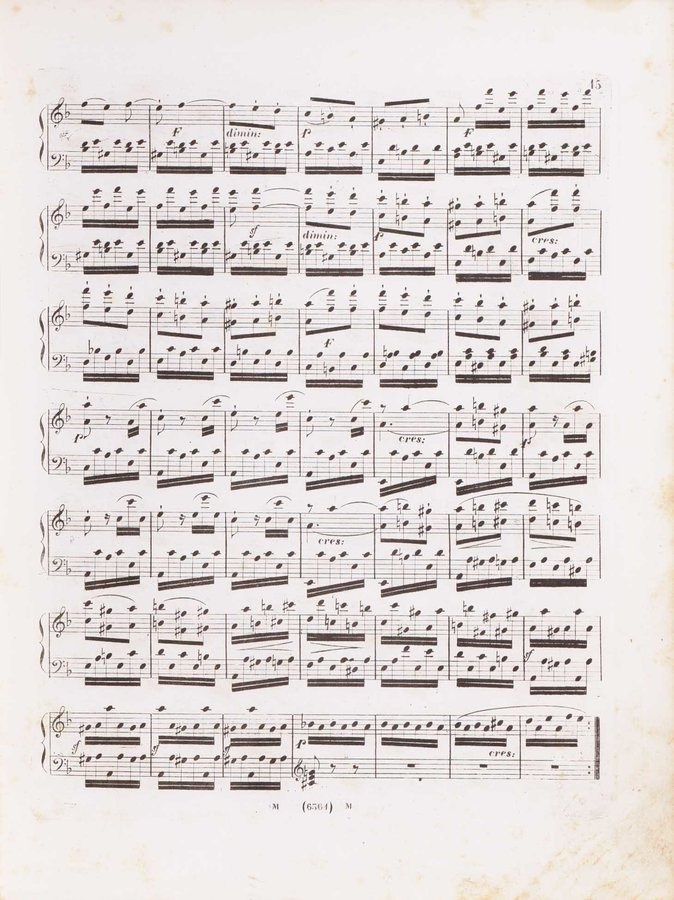 15
F dimin: p F
sf dimin: p cres:
F
p cres:
cres:
sf
sf sf sf p cres:
M (6564) M